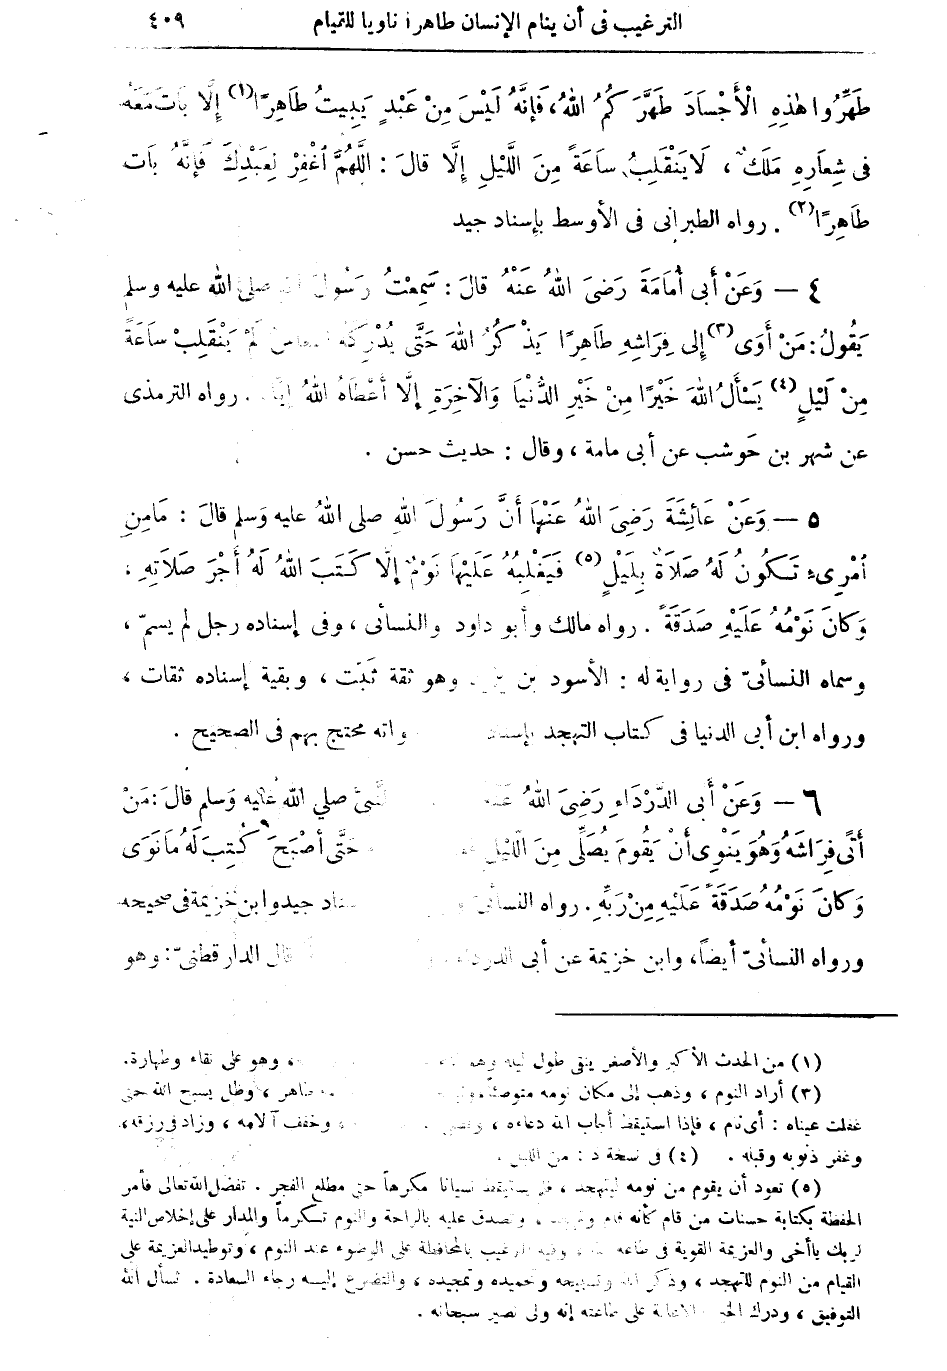 الترغيب فى أن ينام الإنسان طاهرا ناويا للقيام ٤٠٩
طَهِّرُوا هٰذِهِ الْأَجْسَادَ طَهَّرَكُمُ اللهُ، فَإِنَّهُ لَيْسَ مِنْ عَبْدٍ يَبِيتُ طَاهِرًا(١) إِلَّا بَاتَ مَعَهُ
فى شِعَارِهِ مَلَكٌ ، لَا يَنْقَلِبُ سَاعَةً مِنَ اللَّيْلِ إِلَّا قَالَ : اللَّهُمَّ اغْفِرْ لِعَبْدِكَ فَإِنَّهُ بَاتَ
طَاهِرًا(٢) . رواه الطبرانى فى الأوسط بإسناد جيد
٤ — وَعَنْ أَبى أُمَامَةَ رَضِىَ اللهُ عَنْهُ قَالَ : سَمِعْتُ رَسُولَ صلى الله عليه وسلم
يَقُولُ : مَنْ أَوَى(٣) إِلى فِرَاشِهِ طَاهِرًا يَذْكُرُ اللهَ حَتَّى يُدْرِكَهُ لَمْ يَنْقَلِبْ سَاعَةً
مِنْ لَيْلٍ(٤) يَسْأَلُ اللهَ خَيْرًا مِنْ خَيْرِ الدُّنْيَا وَالآخِرَةِ إِلَّا أَعْطَاهُ اللهُ . رواه الترمذى
عن شهر بن حَوشب عن أبى مامة ، وقال : حديث حسن .
٥ — وَعَنْ عَائِشَةَ رَضِىَ اللهُ عَنْهَا أَنَّ رَسُولَ اللهِ صلى اللهُ عليه وسلم قَالَ : مَامِنِ
أمْرِىءٍ تَكُونُ لَهُ صَلَاةٌ بِلَيْلٍ(٥) فَيَغْلِبُهُ عَلَيْهَا نَوْمٌ إِلَّا كَتَبَ اللهُ لَهُ أَجْرَ صَلَاتِهِ ،
وَكَانَ نَوْمُهُ عَلَيْهِ صَدَقَةً . رواه مالك وأبو داود والنسائى ، وفى إسناده رجل لم يسمّ ،
وسماه النسائىّ فى رواية له : الأسود بن وهو ثقة ثَبْت ، وبقية إسناده ثقات ،
ورواه ابن أبى الدنيا فى كتاب التهجد محتج بهم فى الصحيح .
٦ — وَعَنْ أَبى الدَّرْدَاءِ رَضِىَ اللهُ صلى الله عليه وسلم قَالَ : مَنْ
أَتَى فِرَاشَهُ وَهُوَ يَنْوِى أَنْ يَقُومَ يُصَلِّى مِنَ اللَّيْلِ حَتَّى أَصْبَحَ كُتِبَ لَهُ مَا نَوَى
وَكَانَ نَوْمُهُ صَدَقَةً عَلَيْهِ مِنْ رَبِّهِ . رواه النسائى جيد وابن خزيمة فى صحيحه
ورواه النسائىّ أيضاً ، وابن خزيمة عن أبى الدارقطنىّ : وهو
(١) من الحدث الأكبر والأصغر ينقى طول ليله وهو ، وهو على نقاء وطهارة .
(٣) أراد النوم ، وذهب إلى مكان نومه متوضئا طاهر ، وظل يسبح الله حتى
غفلت عيناه : أى نام ، فإذا استيقظ أجاب الله دعاءه ، وخفف آلامه ، وزاد فى رزقه ،
وغفر ذنوبه وقبله . (٤) فى نسخة د : من الليل .
(٥) تعود أن يقوم من نومه ليتهجد ، يستيقظ نسيانا مكرهاً حتى مطلع الفجر . تفضل الله تعالى فأمر
الحفظة بكتابة حسنات من قام كأنه قام ، وتصدق عليه بالراحة والنوم تكرماً والمدار على إخلاص النية
لربك ياأخى والعزيمة القوية فى طاعة ، وفيه الترغيب بالمحافظة على الوضوء عند النوم ، وتوطيد العزيمة على
القيام من النوم للتهجد ، وذكر الله وتسبيحه وتحميده وتمجيده ، والتضرع إليه رجاء السعادة . نسأل الله
التوفيق ، ودرك على طاعته إنه ولى نصير سبحانه .